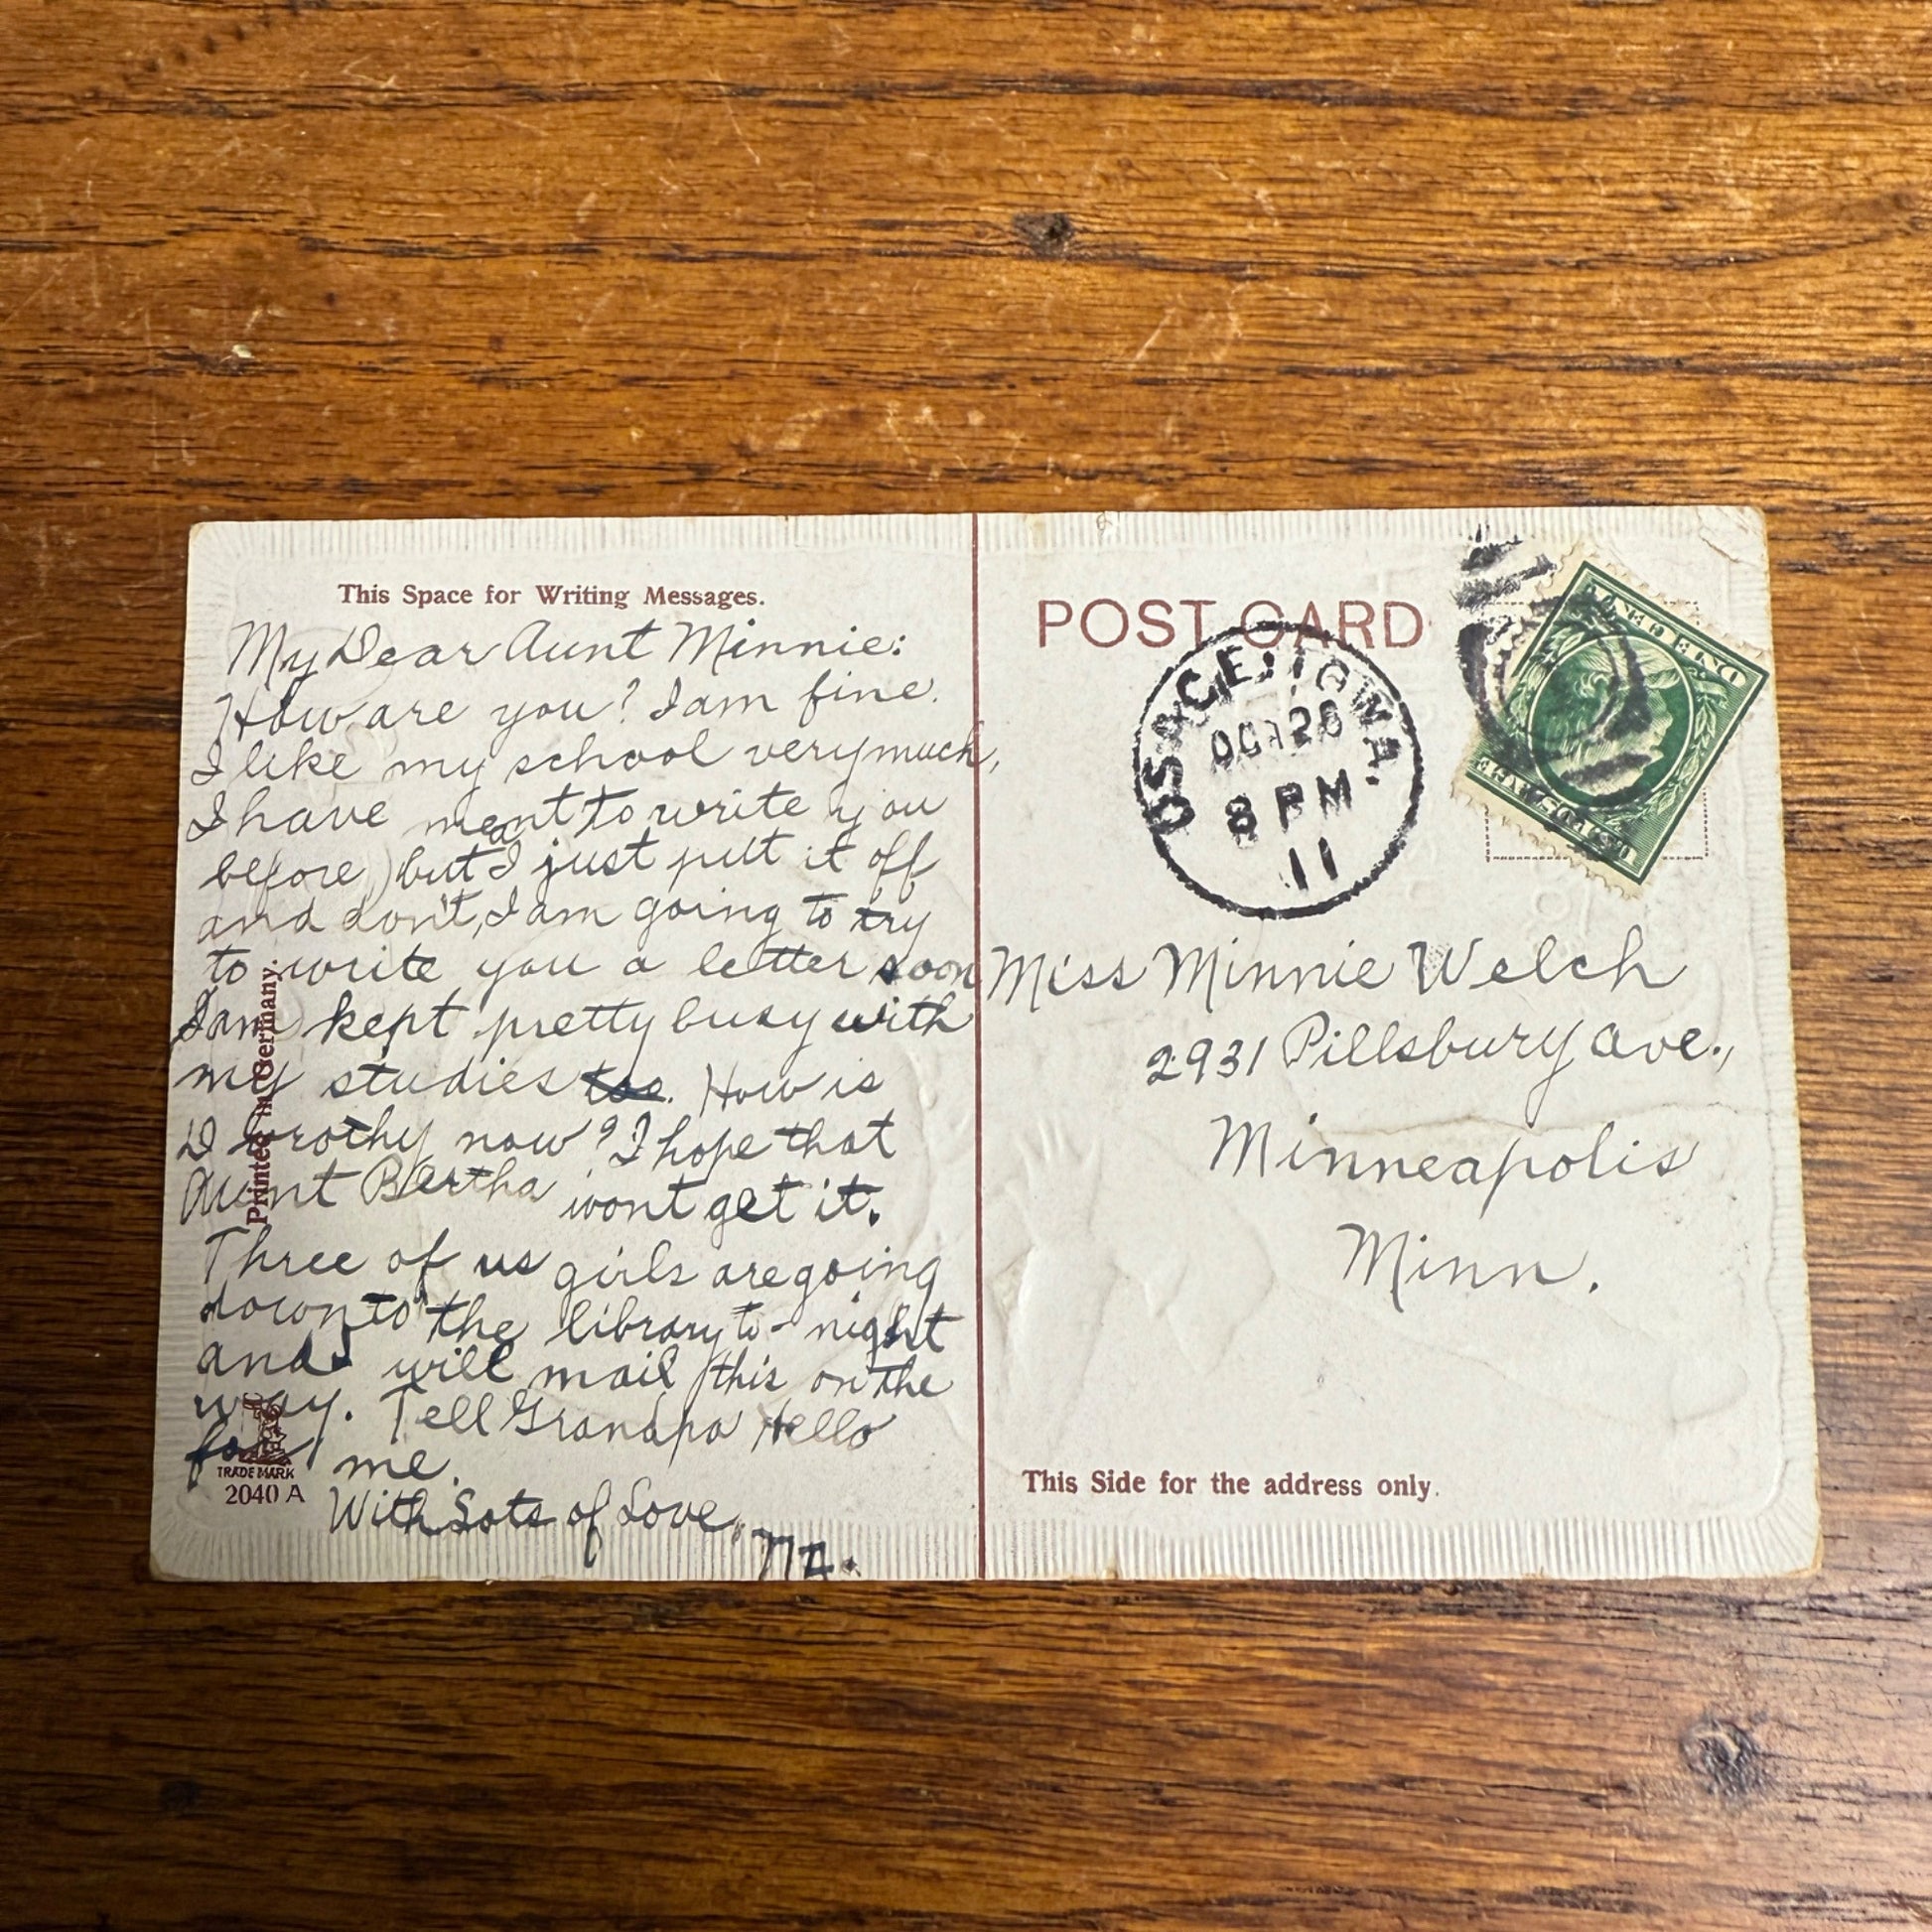 This Space for Writing Messages.
My Dear Aunt Minnie:
How are you? I am fine.
I like my school very much,
I have meant to write you
before) but I just putt it off
and don't, I am going to try
to write you a letter soon
I am kept pretty busy with
my studies too. How is
Dorothy now? I hope that
Aunt Bertha wont get it.
Three of us girls are going
down to the library to-night
and will mail this on the
way. Tell Grandpa Hello
for me.
With Lots of Love,
Printed in Germany.
TRADE MARK
2040 A
POST CARD
OSACE, IOWA.
OCT 26
8 PM
11
ONE CENT
Miss Minnie Welch
2931 Pillsbury Ave.,
Minneapolis
Minn.
This Side for the address only.